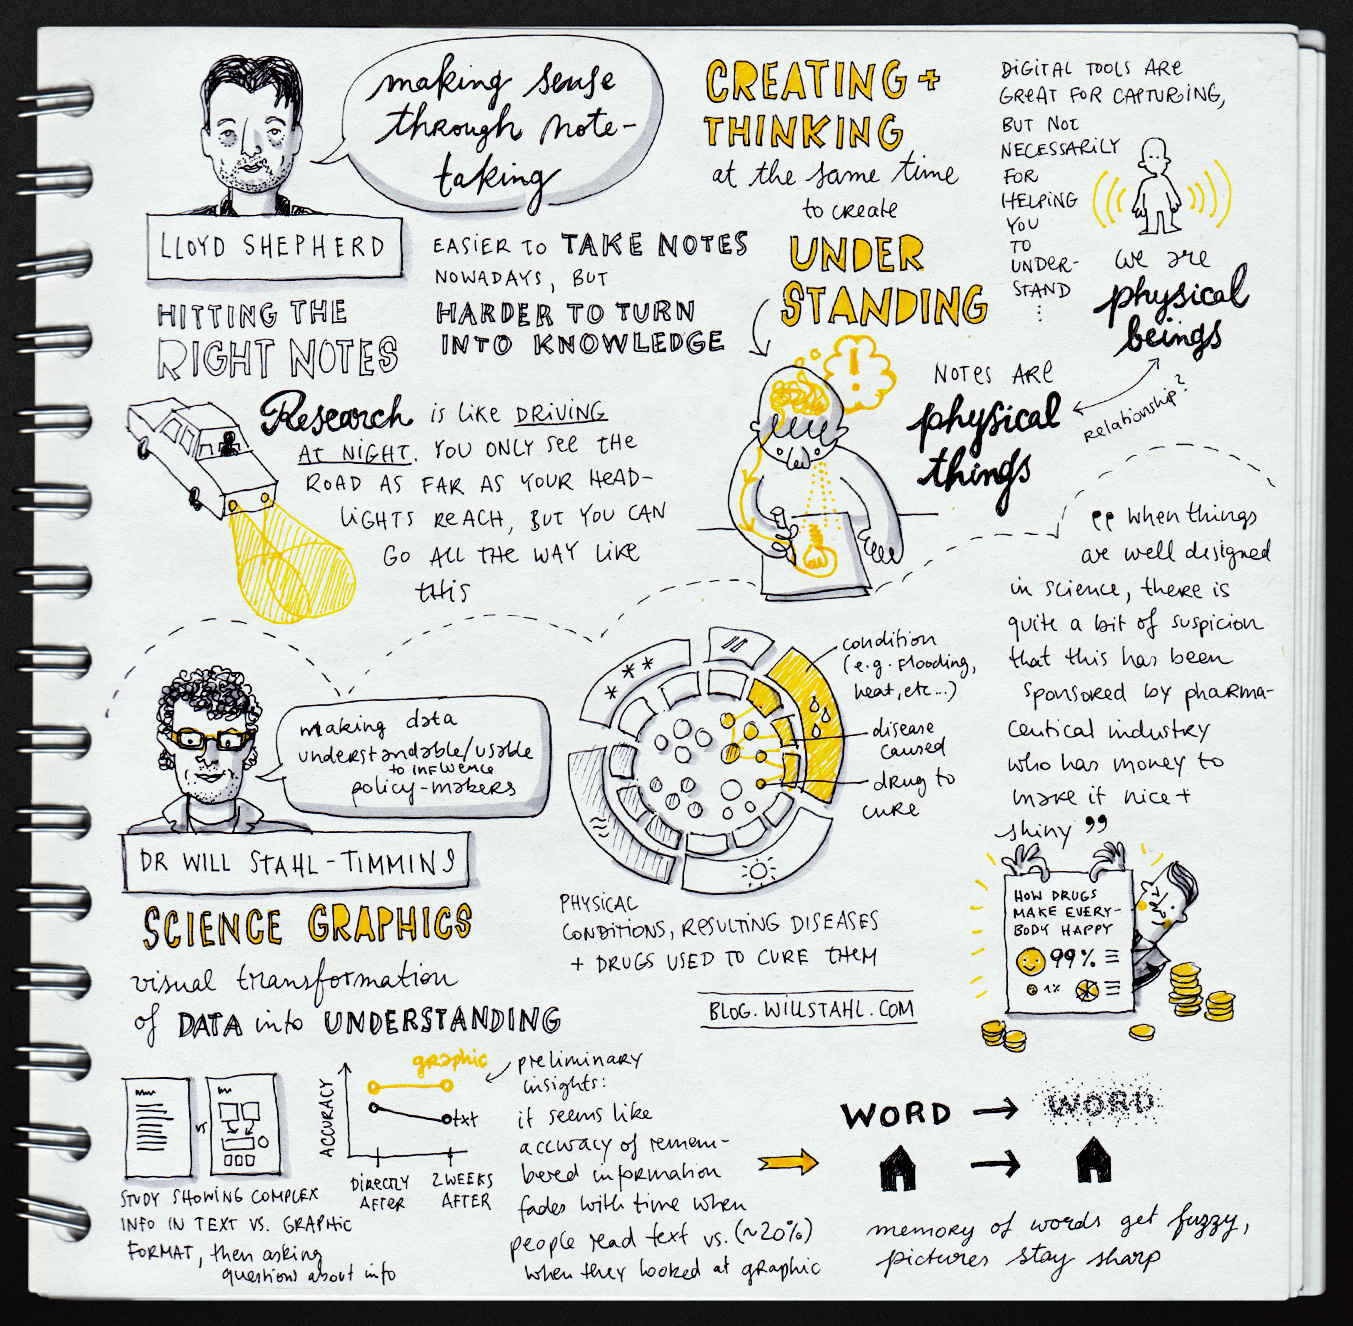 making sense
through note-
taking
LLOYD SHEPHERD
HITTING THE
RIGHT NOTES
EASIER TO TAKE NOTES
NOWADAYS, BUT
HARDER TO TURN
INTO KNOWLEDGE
Research is like DRIVING
AT NIGHT. YOU ONLY SEE THE
ROAD AS FAR AS YOUR HEAD-
LIGHTS REACH, BUT YOU CAN
GO ALL THE WAY LIKE
THIS
CREATING +
THINKING
at the same time
to create
UNDER
STANDING
!
DIGITAL TOOLS ARE
GREAT FOR CAPTURING,
BUT NOT
NECESSARILY
FOR
HELPING
YOU
TO
UNDER-
STAND
...
we are
physical
beings
relationship?
NOTES ARE
physical
things
making data
understandable/usable
to influence
policy-makers
DR WILL STAHL-TIMMINS
SCIENCE GRAPHICS
visual transformation
of DATA into UNDERSTANDING
condition
(e.g. flooding,
heat, etc...)
disease
caused
drug to
cure
PHYSICAL
CONDITIONS, RESULTING DISEASES
+ DRUGS USED TO CURE THEM
BLOG.WILLSTAHL.COM
"when things
are well designed
in science, there is
quite a bit of suspicion
that this has been
sponsored by pharma-
ceutical industry
who has money to
make it nice +
shiny"
HOW DRUGS
MAKE EVERY-
BODY HAPPY
99%
1%
vs
STUDY SHOWING COMPLEX
INFO IN TEXT VS. GRAPHIC
FORMAT, then asking
questions about info
ACCURACY
graphic
txt
DIRECTLY
AFTER
2 WEEKS
AFTER
preliminary
insights:
it seems like
accuracy of remem-
bered information
fades with time when
people read text vs. (~20%)
when they looked at graphic
WORD → WORD
→
memory of words get fuzzy,
pictures stay sharp